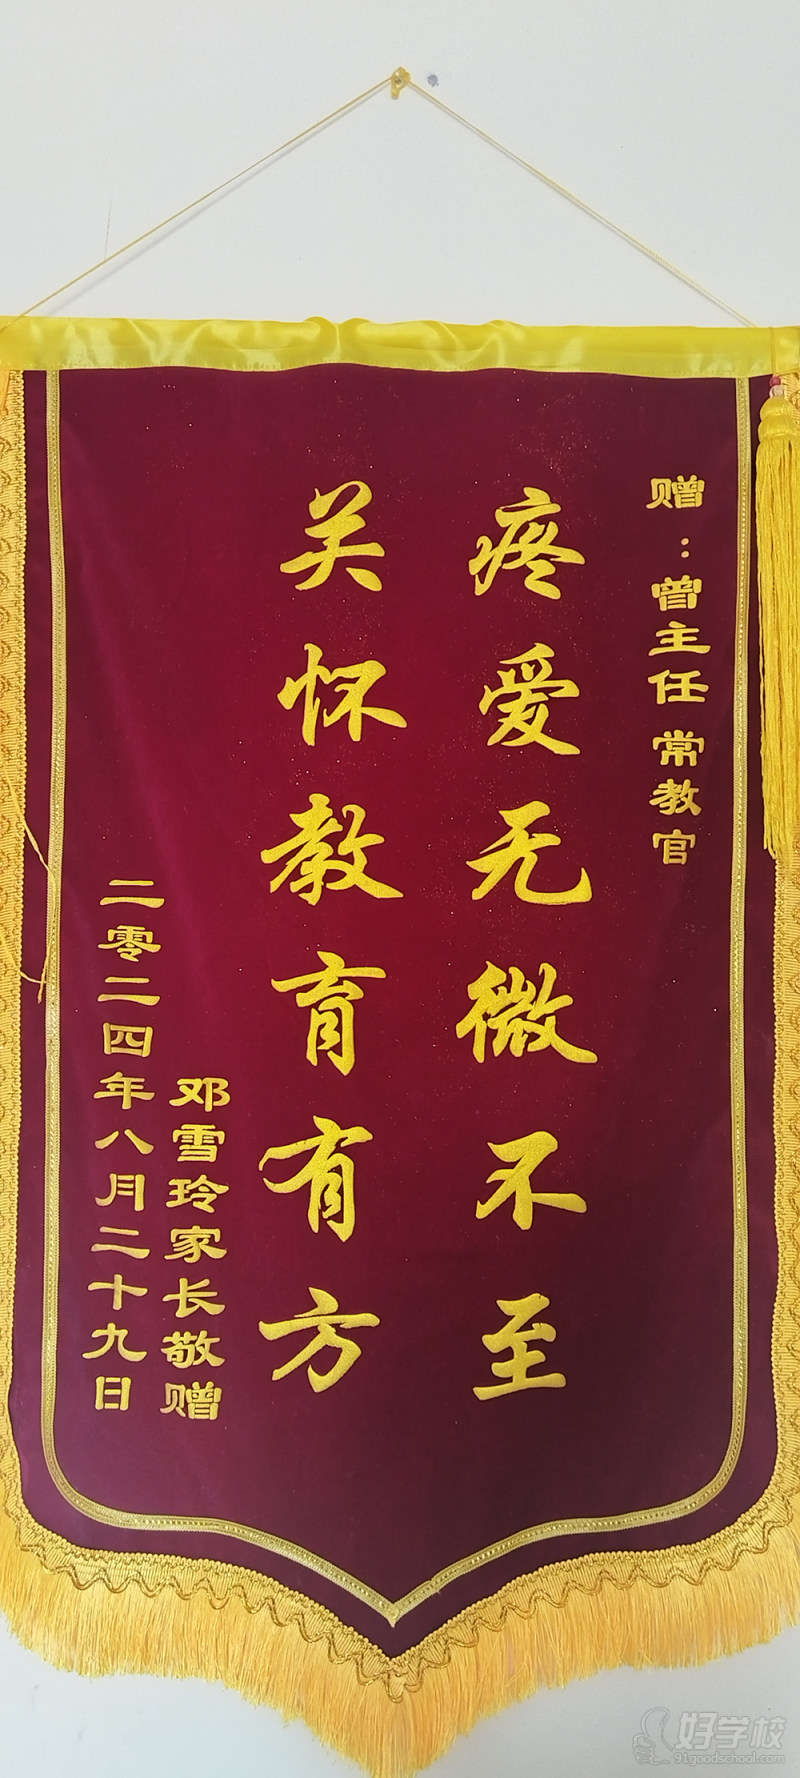 赠：曾主任 常教官
疼爱无微不至
关怀教育有方
邓雪玲家长敬赠
二零二四年八月二十九日
好学校
91goodschool.com